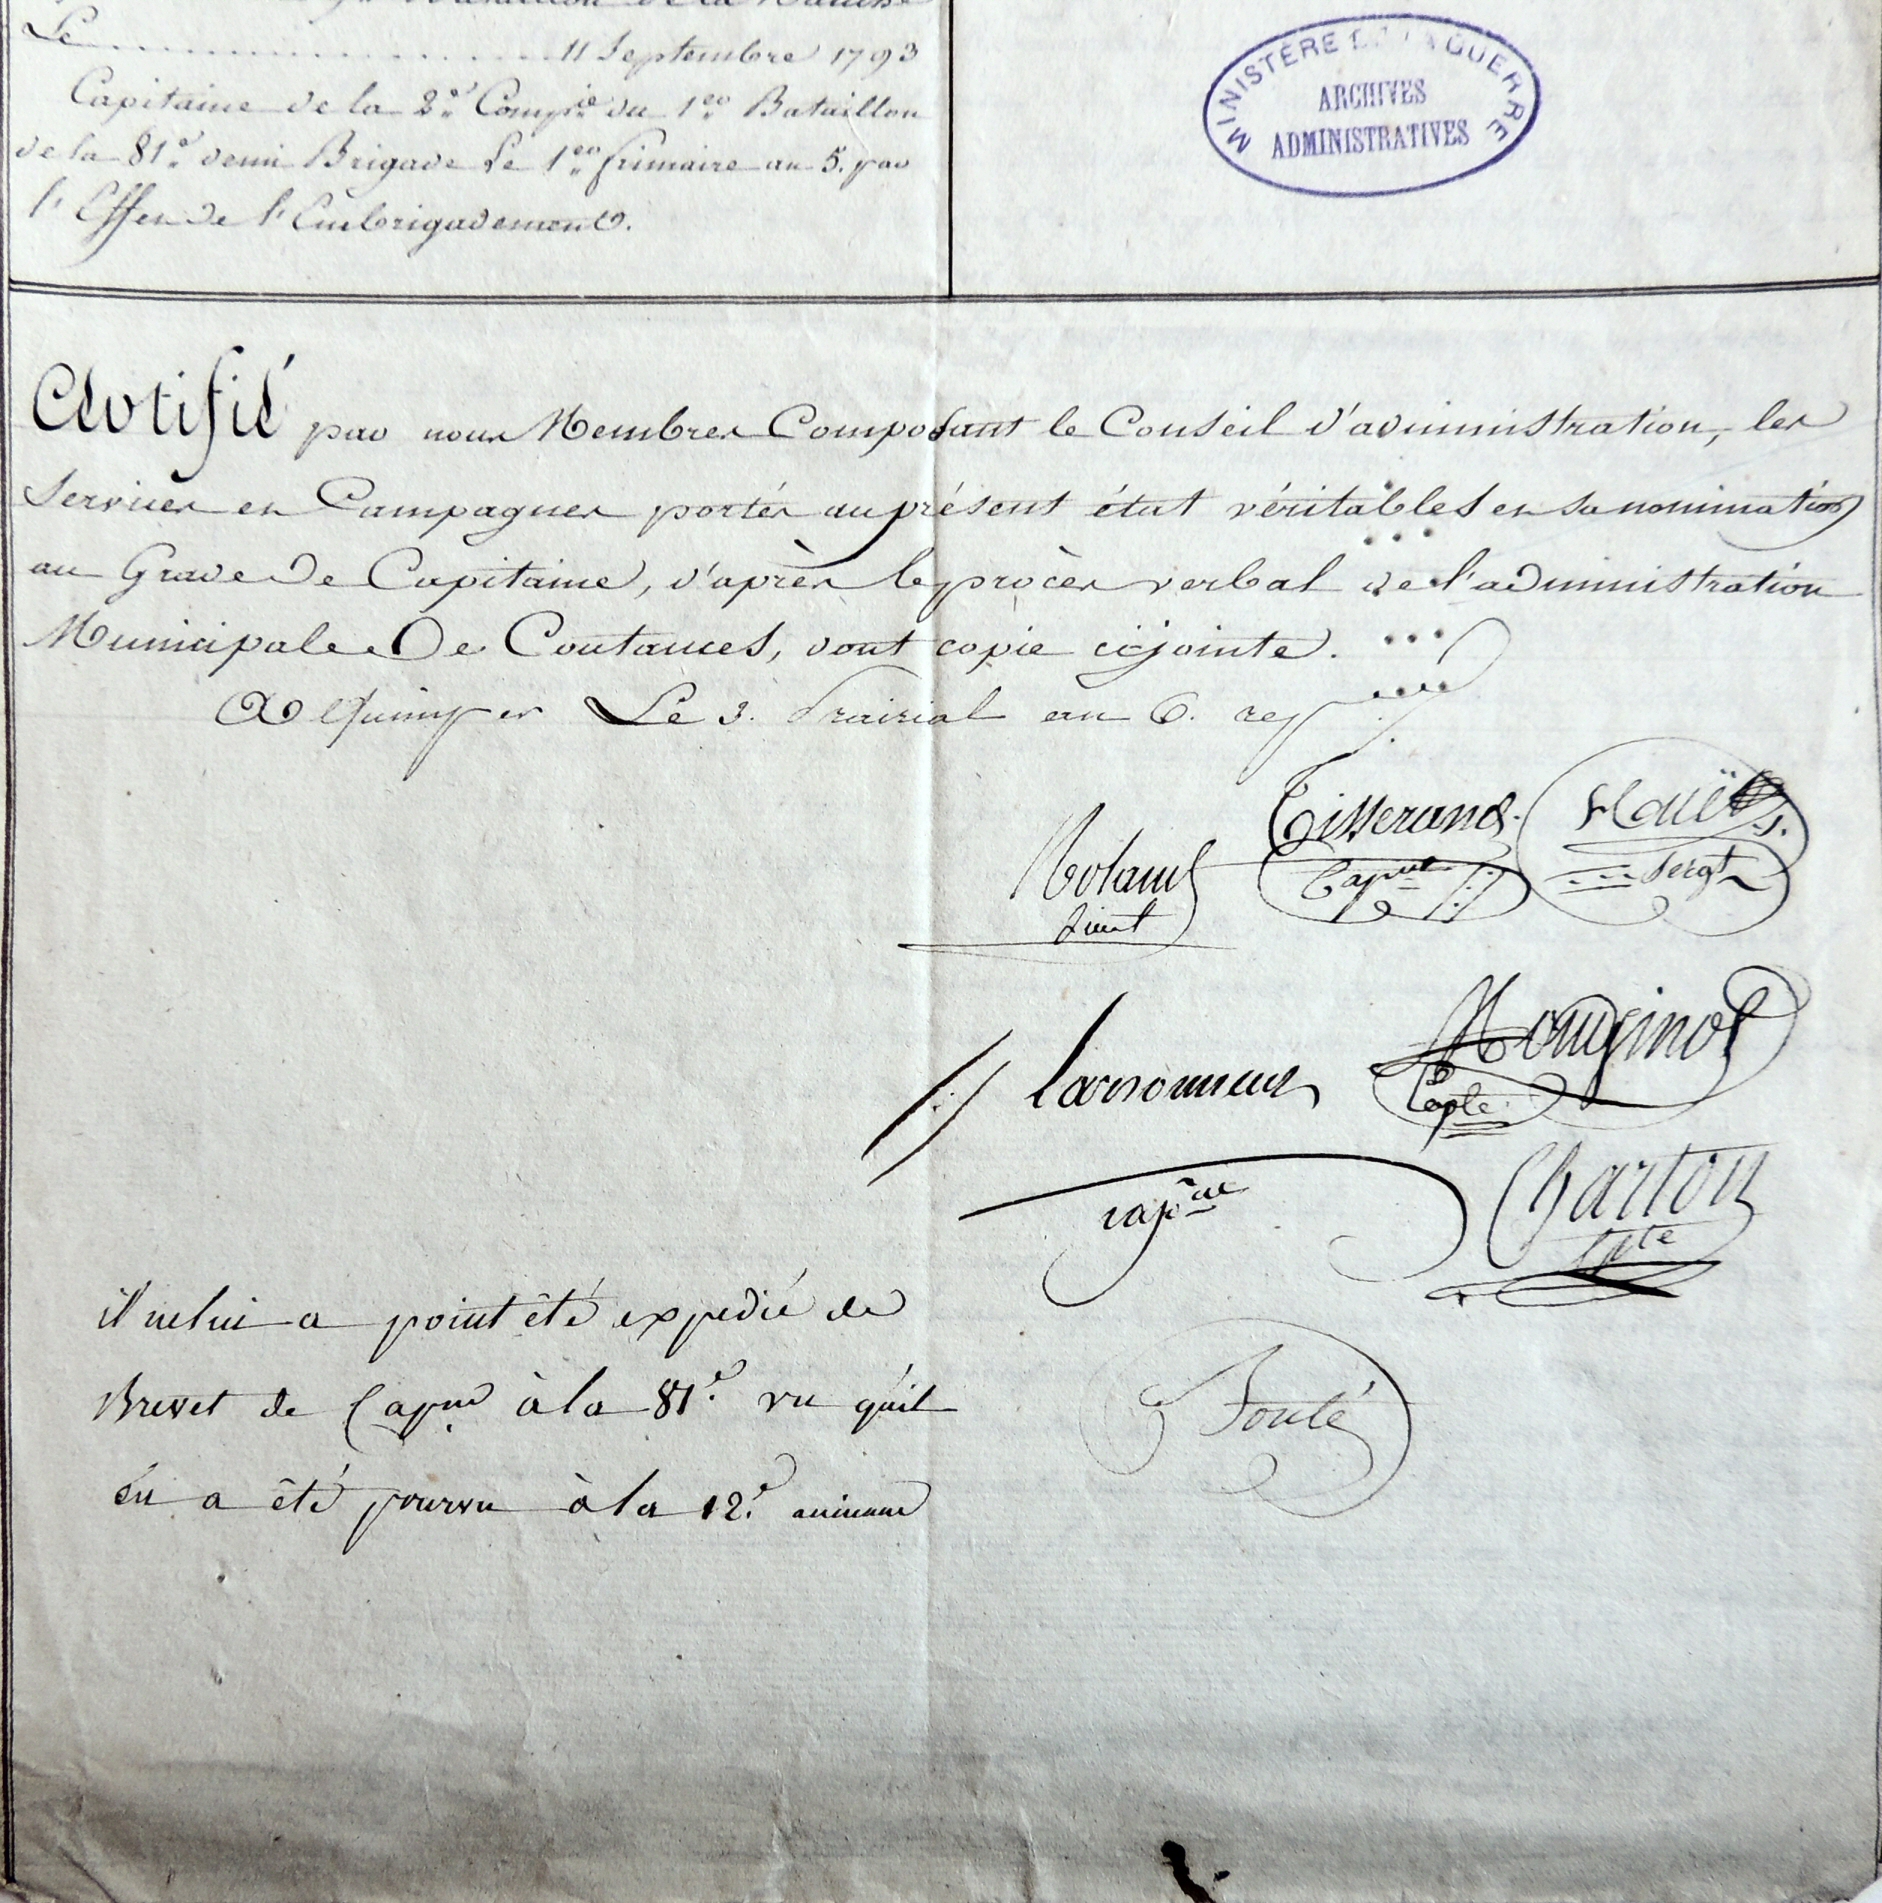 Bataillon de la Manche
Le 11 Septembre 1793
Capitaine de la 2e. Compie. du 1er. Bataillon
de la 81e. demi Brigade Le 1er. frimaire an 5. par
l'Effet de l'Embrigadement.
MINISTÈRE DE LA GUERRE
ARCHIVES
ADMINISTRATIVES
Certifié par nous Membres Composant le Conseil d'administration, les
Services et Campagnes portés au présent état véritables et sa nomination
au Grade De Capitaine, d'après le procès verbal de l'administration
Municipale De Coutances, dont copie cijointe.
A Quimper Le 3. Prairial an 6. rep
Tisserand
Capne
Sergt
Roland
Mouginot
Capte
Larsonneur
capne
Charton
Fonté
il ne lui a point été expedié de
Brevet de Capne à la 81e. vu qu'il
en a été pourvu à la 12e.